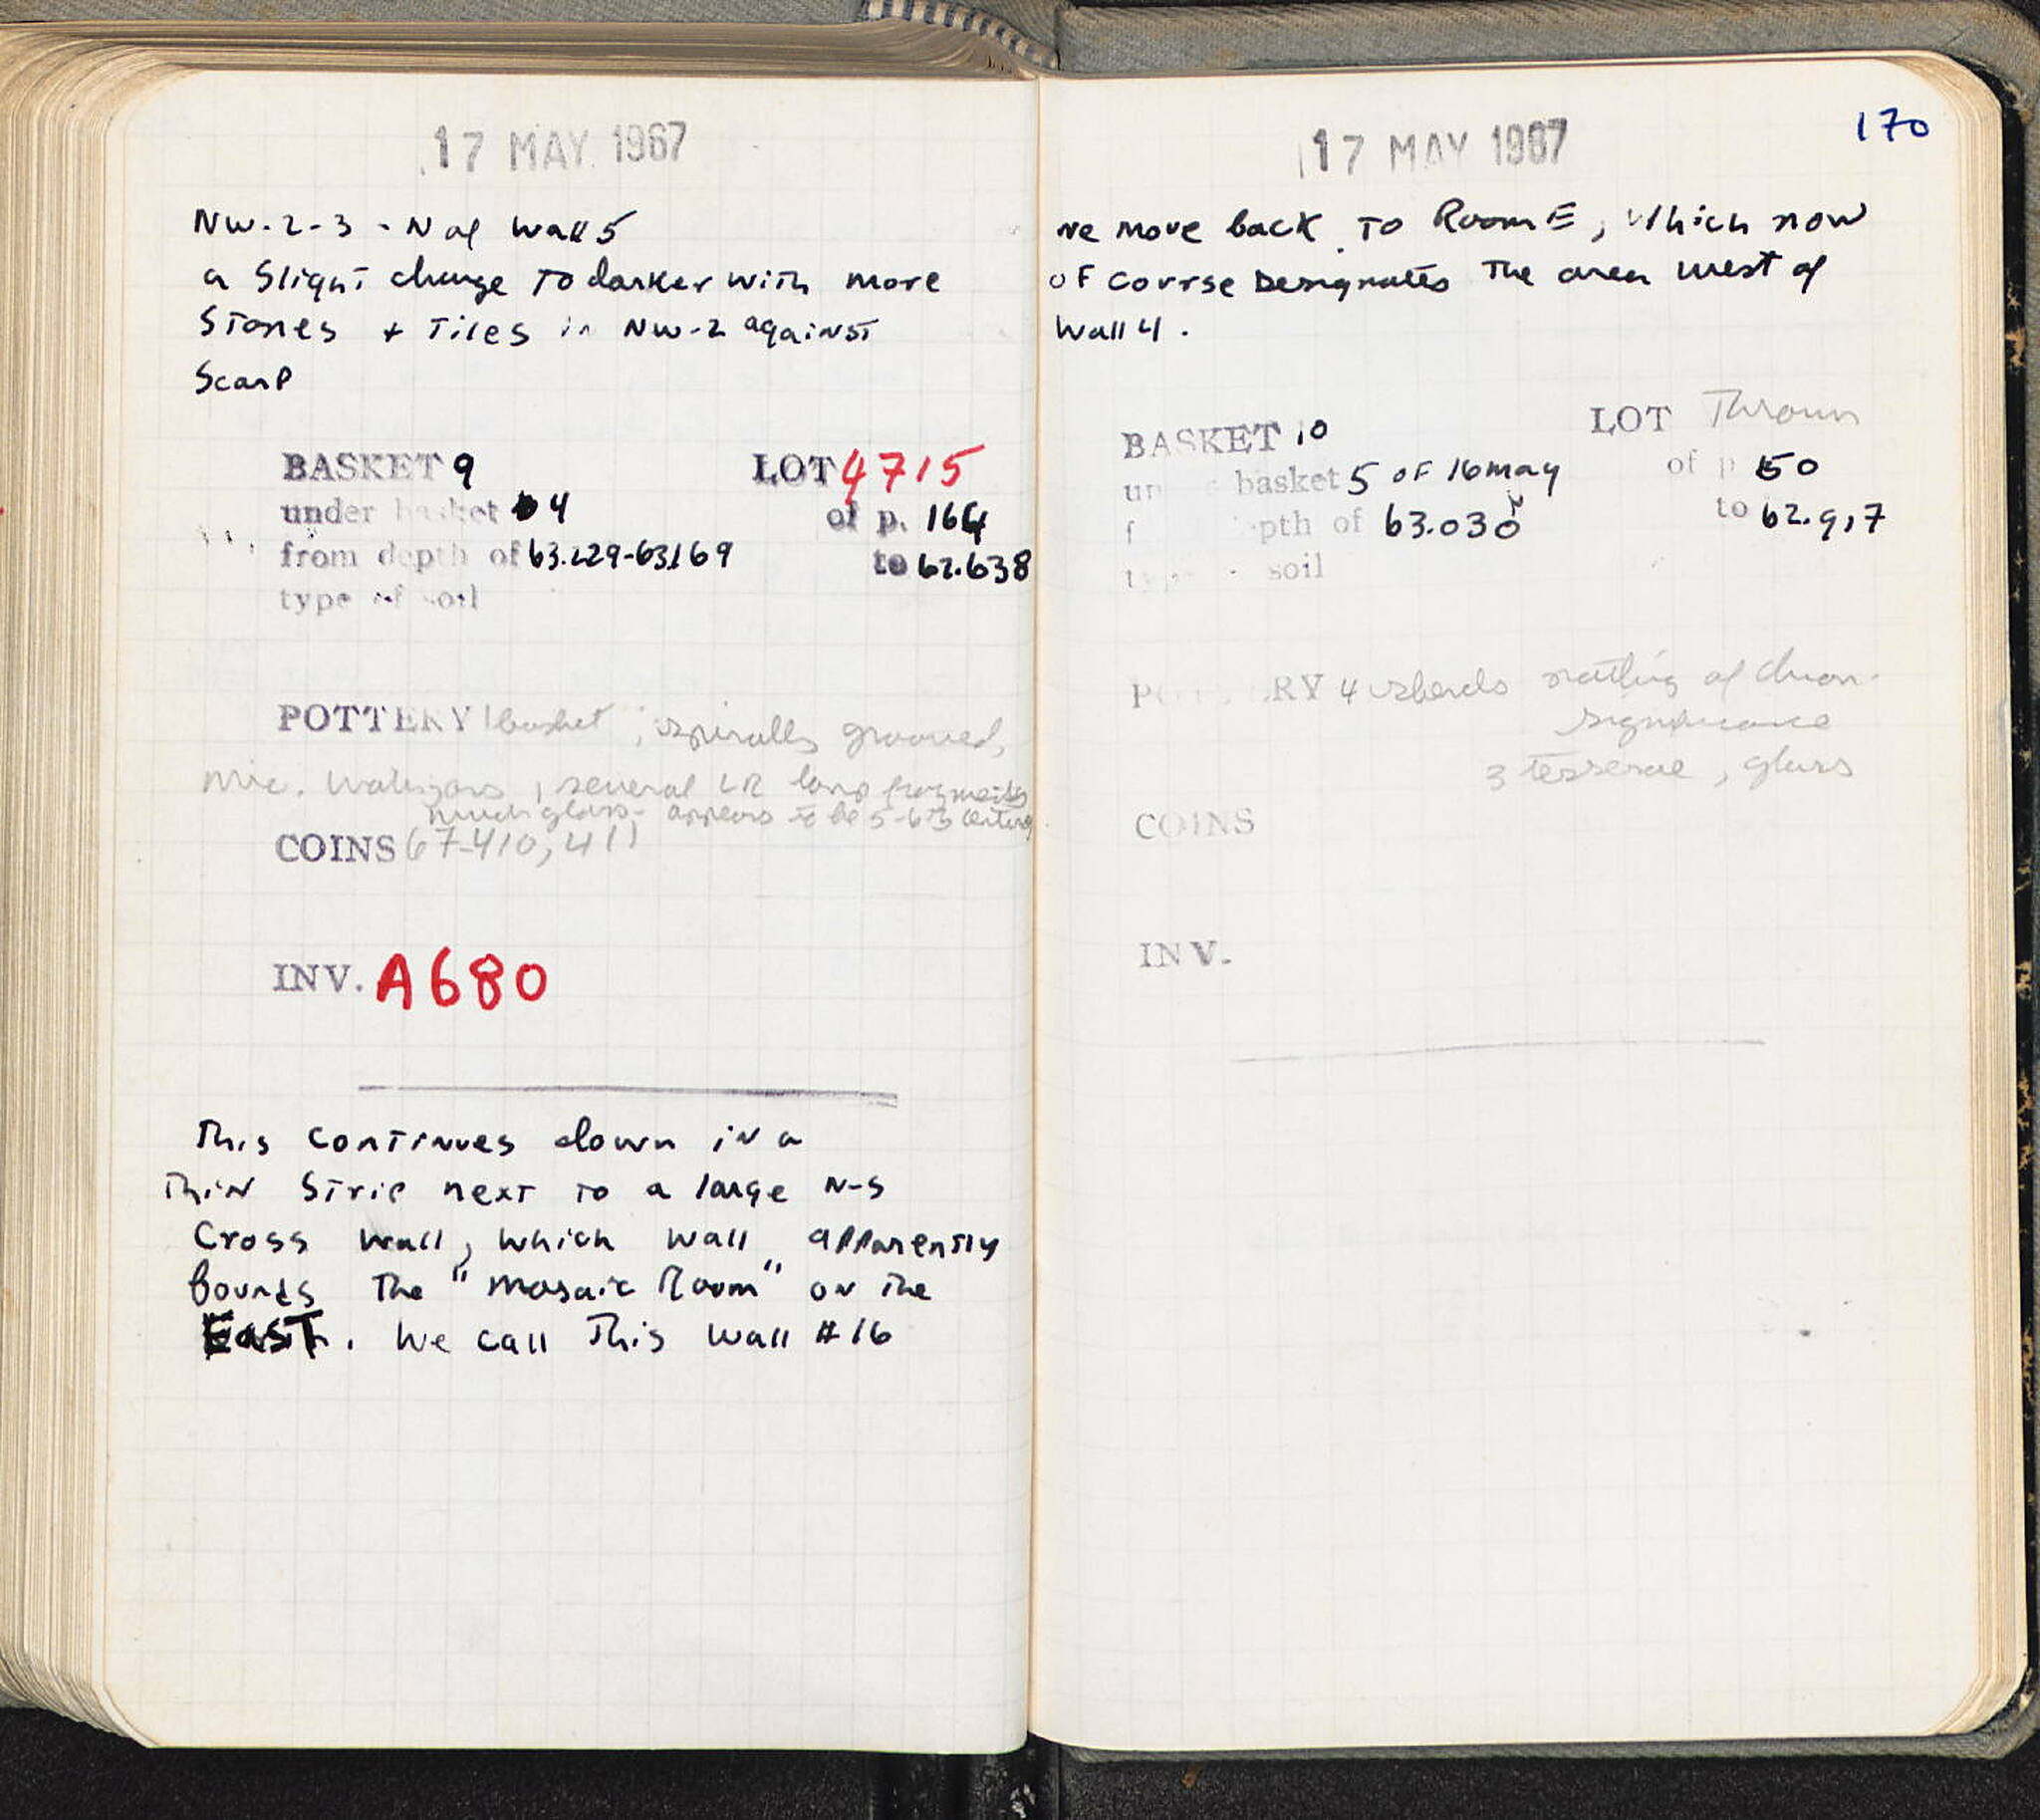 17 MAY 1967
NW-2-3 - N of Wall 5
a slight change to darker with more
stones + tiles in NW-2 against
scarp
BASKET 9 LOT 4715
under basket 4 of p. 164
from depth of 63.229-63.169 to 62.638
type of soil
POTTERY 1 basket, spirally grooved,
mic. waterjars, several LR lamp fragments
much glass - appears to be 5-6th century
COINS 67-410, 411
INV. A680
This continues down in a
Thin strip next to a large N-S
Cross wall, which wall apparently
bounds the "Mosaic Room" on the
EAST. We call This Wall #16
17 MAY 1967
170
we move back to Room E, which now
of course designates the area west of
Wall 4.
BASKET 10 LOT Thrown
basket 5 of 16 may of p 50
depth of 63.030 to 62.917
type soil
POTTERY 4 sherds nothing of chron.
significance
3 tesserae, glass
COINS
INV.